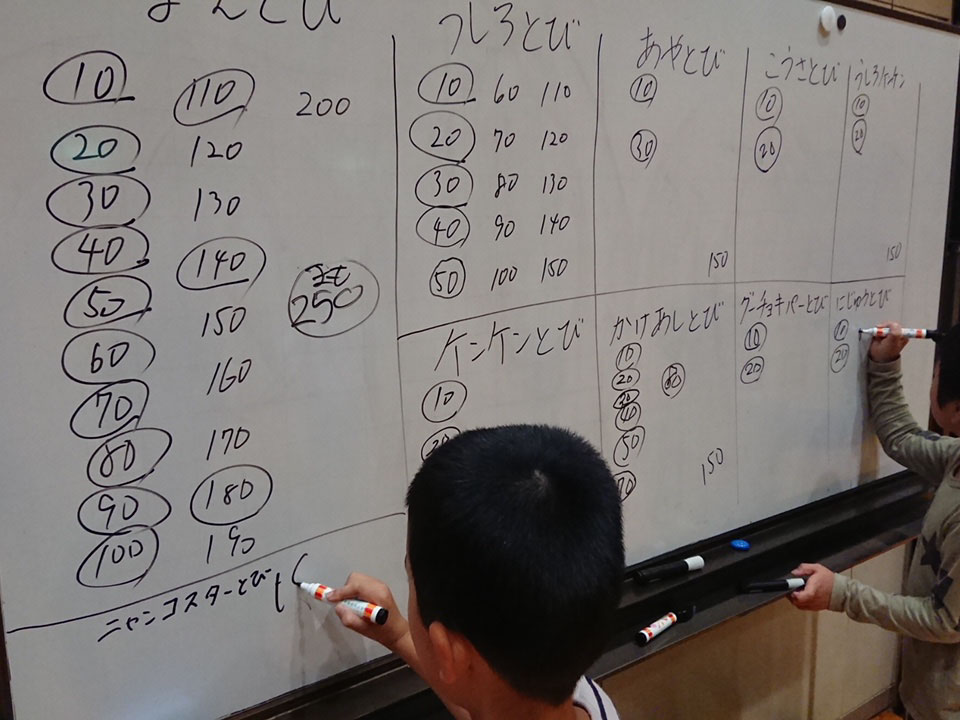 まえとび
10 110 200
20 120
30 130
40 140
50 150 250
60 160
70 170
80 180
90 190
100
ニャンコスターとび 1
うしろとび
10 60 110
20 70 120
30 80 130
40 90 140
50 100 150
あやとび
10
30
150
こうさとび
10
20
うしろケンケン
10
20
150
ケンケンとび
10
かけあしとび
10
20
30
40
50
70
150
グーチョキパーとび
10
20
にじゅうとび
10
20